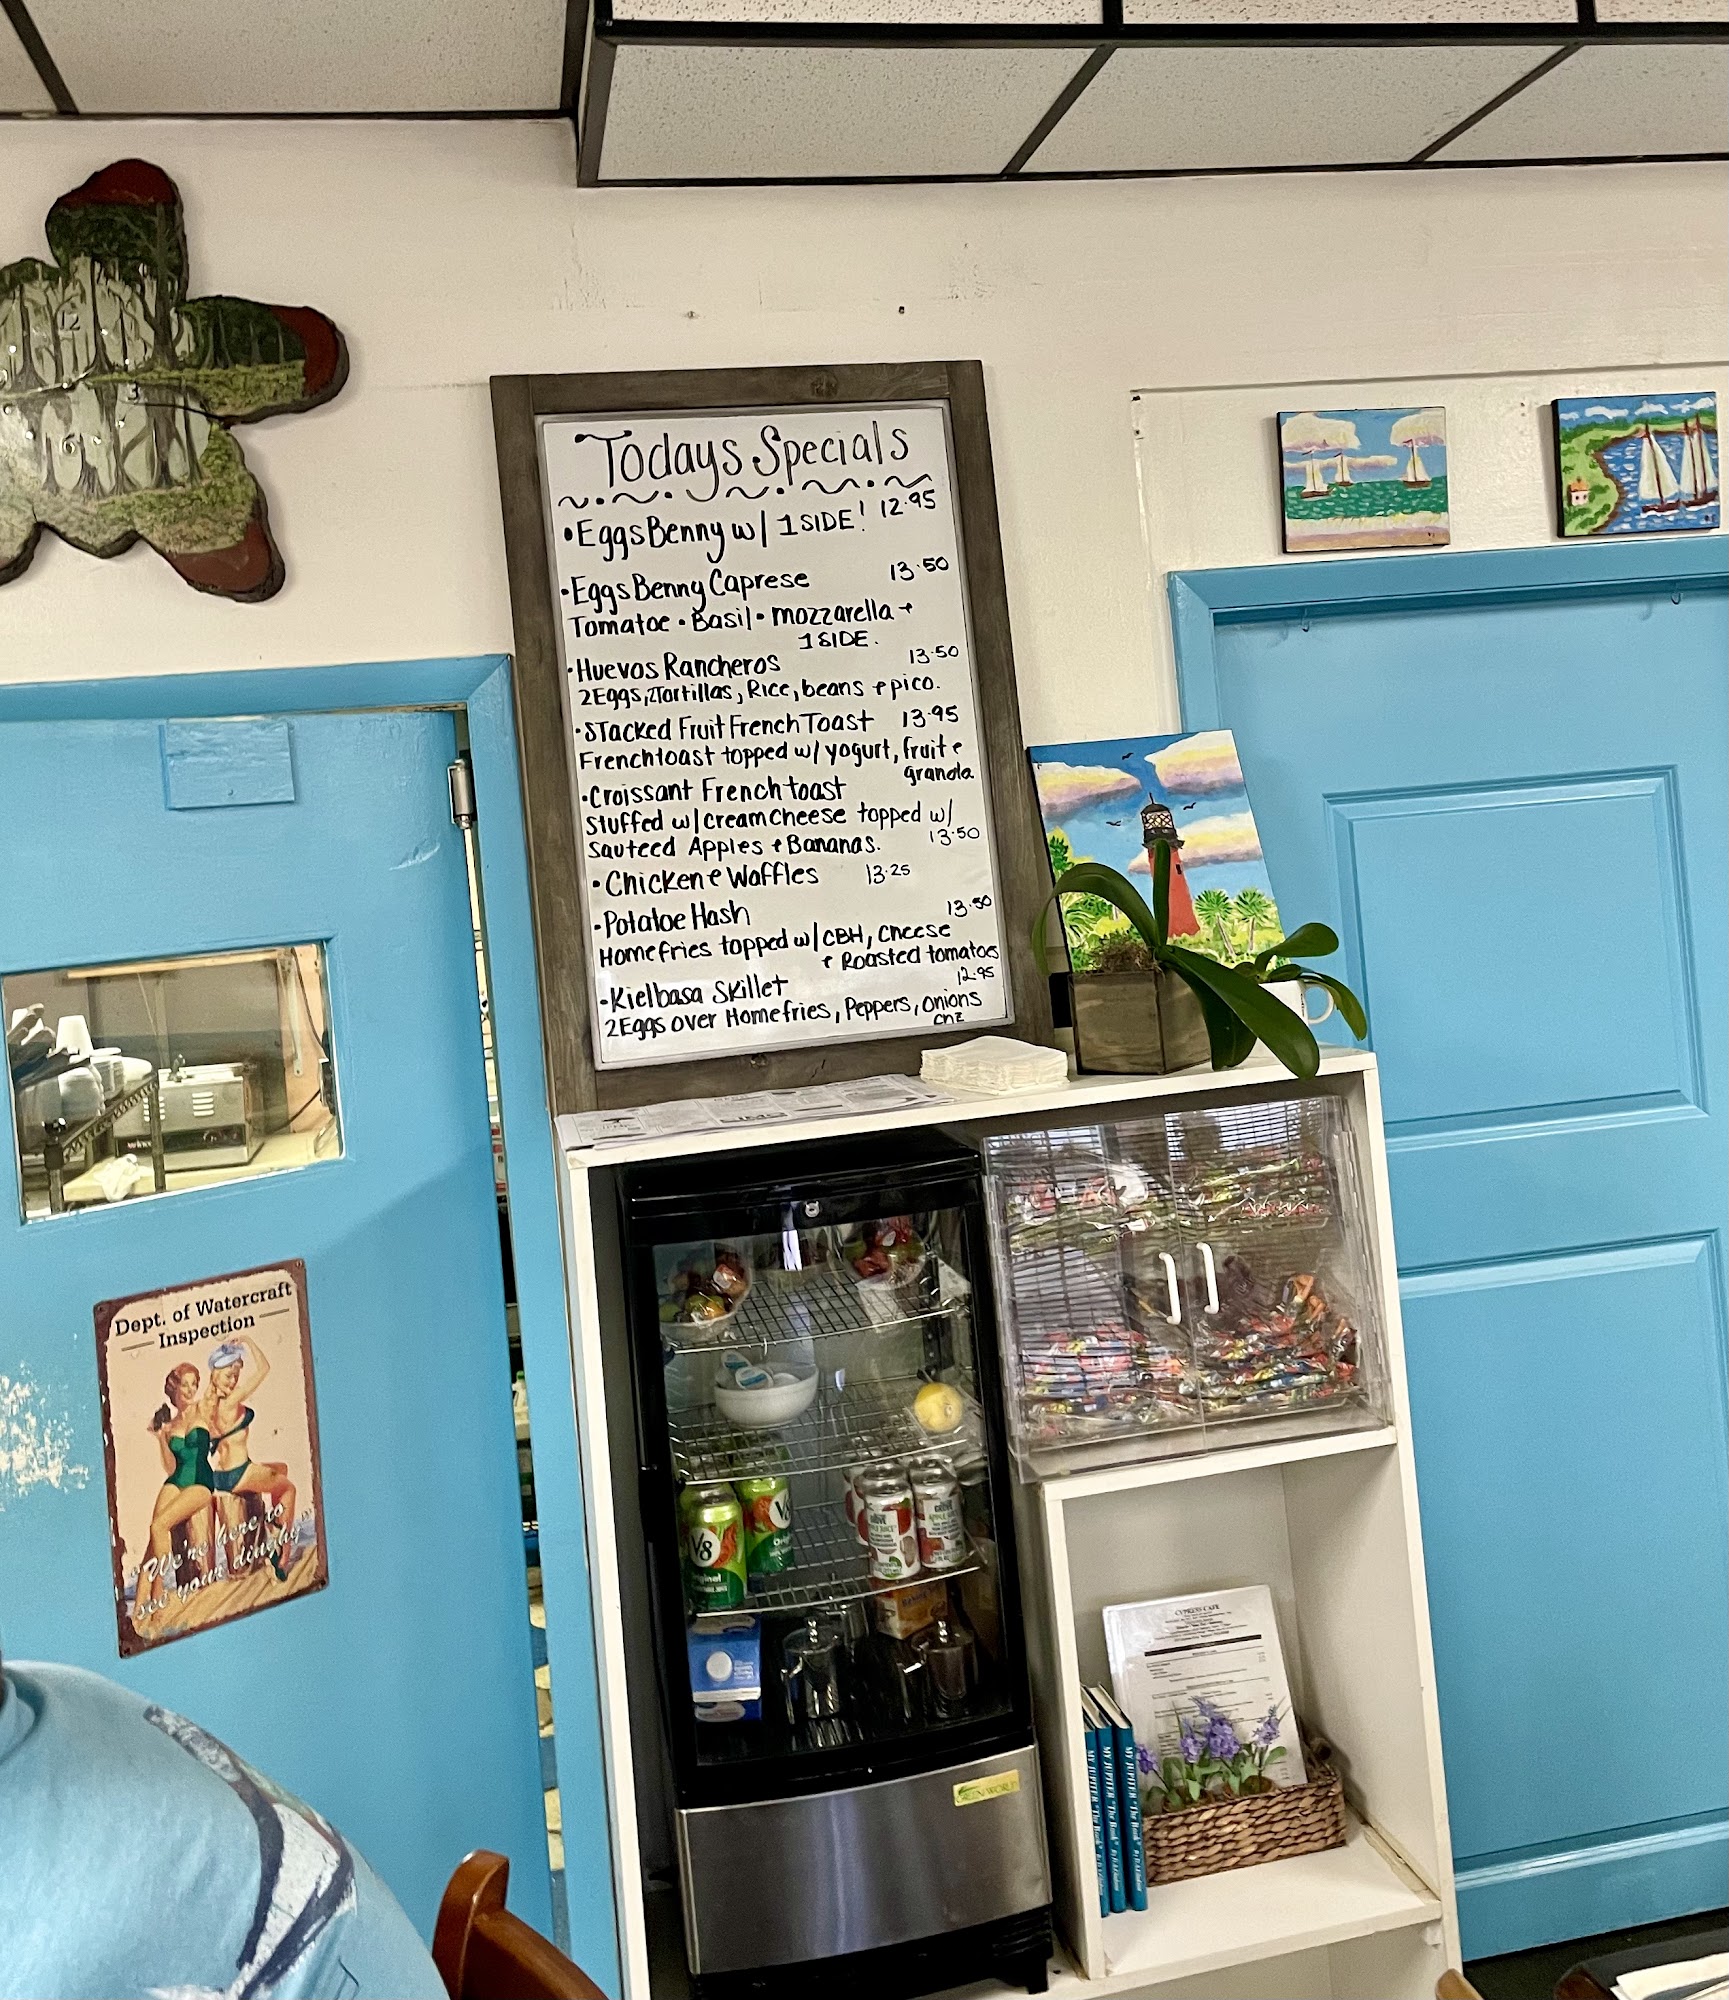 Todays Specials
• Eggs Benny w/ 1 SIDE! 12.95
• Eggs Benny Caprese 13.50
Tomatoe • Basil • mozzarella +
1 SIDE.
• Huevos Rancheros 13.50
2 Eggs, 2 Tortillas, Rice, beans + pico.
• Stacked Fruit French Toast 13.95
Frenchtoast topped w/ yogurt, fruit +
granola
• Croissant Frenchtoast
Stuffed w/ creamcheese topped w/
Sauteed Apples + Bananas. 13.50
• Chicken + Waffles 13.25
• Potatoe Hash 13.50
Homefries topped w/ CBH, cheese
+ Roasted tomatoes
• Kielbasa Skillet 12.95
2 Eggs over Homefries, Peppers, onions
chz
12
3
6
Dept. of Watercraft
Inspection
"We're here to
see your dinghy"
V8
Original
V8
GREEN WORLD
CYPRESS CAFE
MY JUPITER "The Book"
MY JUPITER "The Book"
MY JUPITER "The Book"